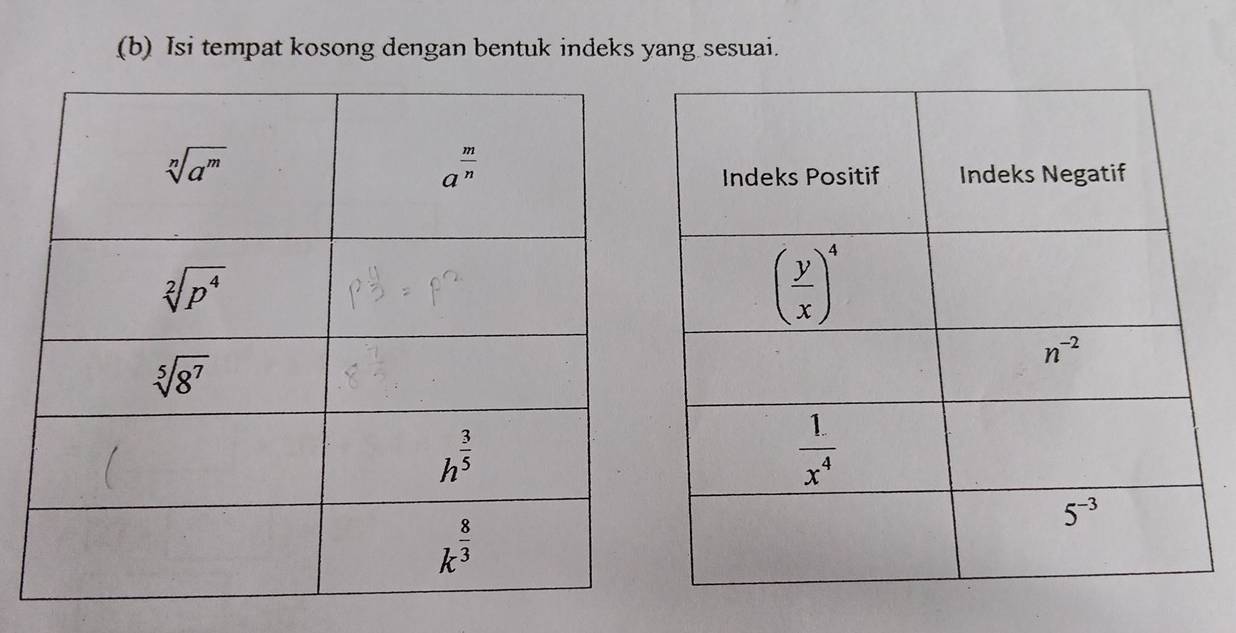 (b) Isi tempat kosong dengan bentuk indeks yang sesuai.
ⁿ√(aᵐ) a^(m/n)
²√(p⁴) p^(4/2) = p²
⁵√(8⁷) 8^(7/5)
( h^(3/5)
k^(8/3)
Indeks Positif Indeks Negatif
(y/x)⁴
n⁻²
1/x⁴
5⁻³